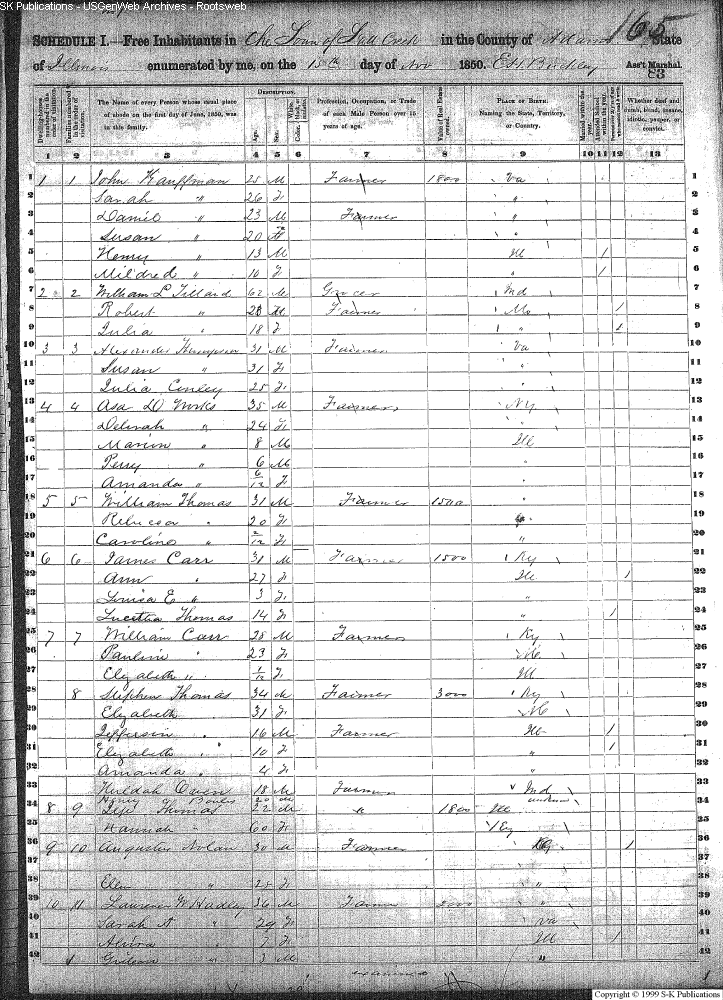 SK Publications - USGenWeb Archives - Rootsweb
165
SCHEDULE I.—Free Inhabitants in The Town of Fall Creek in the County of Adams State
of Illinois enumerated by me, on the 15th day of Nov 1850. Ass't Marshal.
83
Dwelling-houses numbered in the order of visitation.
Families numbered in the order of visitation.
The Name of every Person whose usual place of abode on the first day of June, 1850, was in this family.
DESCRIPTION.
Age. Sex. White, black, or mulatto. Color.
Profession, Occupation, or Trade of each Male Person over 15 years of age.
Value of Real Estate owned.
PLACE OF BIRTH. Naming the State, Territory, or Country.
Married within the year.
Attended School within the year.
Whether deaf and dumb, blind, insane, idiotic, pauper, or convict.
1 2 3 4 5 6 7 8 9 10 11 12 13
1 1 1 John Kauffman 25 M Farmer 1800 Va 1
2 Sarah " 26 F " 2
3 Daniel " 23 M Farmer " 3
4 Susan " 20 F " 4
5 Henry " 13 M Ill / 5
6 Mildred " 10 F " / 6
7 2 2 William L Tillard 62 M Grocer Md 7
8 Robert " M Farmer Mo / 8
9 Julia " 18 F " / 9
10 3 3 Alexander Thompson 31 M Farmer Va 10
11 Susan " 31 F " 11
12 Julia Conley 25 F " 12
13 4 4 Asa D 35 M Farmer NY 13
14 Deborah " 24 F " 14
15 Marion " 8 M Ill 15
16 Perry " 6 M " 16
17 Amanda " 6/12 F " 17
18 5 5 William Thomas 31 M Farmer 1500 " 18
19 Rebecca " 20 F " 19
20 Caroline " 2/12 F " 20
21 6 6 James Carr 31 M Farmer 1500 Ky 21
22 Ann " 27 F Ill / 22
23 Louisa E " 3 F " 23
24 Lucetta Thomas 14 F " / 24
25 7 7 William Carr 28 M Farmer Ky 25
26 " 23 F 26
27 Elizabeth " 1/12 F Ill 27
28 8 Stephen Thomas 34 M Farmer 3000 Ky 28
29 Elizabeth 31 F 29
30 Jefferson " 16 M Farmer Ill / 30
31 Elizabeth " 10 F " / 31
32 Amanda " 4 F " 32
33 Huldah Owen 18 M Farmer Ind 33
Henry Bowles 20 M unknown
34 8 9 Thomas 22 M " 1800 Ill 34
35 Hannah " 60 F Ky 35
36 9 10 Augustus Nolan 30 M Farmer Ky / 36
37 37
38 Ellen " 25 F " 38
39 10 11 Lawrence W Hadley 36 M Farmer 2000 " 39
40 Sarah A " 29 F Va 40
41 " 7 F Ill / 41
42 " 3 M " 42
Copyright © 1999 S-K Publications